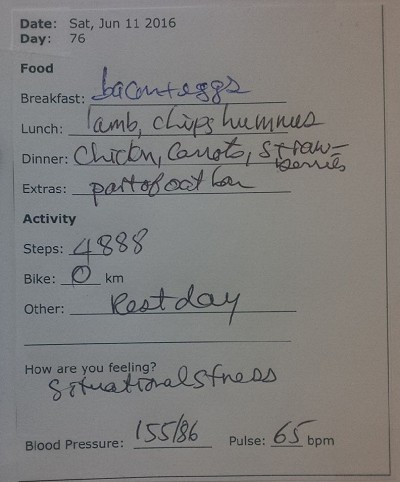 Date: Sat, Jun 11 2016
Day: 76
Food
Breakfast: bacon + eggs
Lunch: lamb, chips hummus
Dinner: Chickn, Carrots, straw-
berries
Extras: part of oat bar
Activity
Steps: 4888
Bike: 0 km
Other: Rest day
How are you feeling?
Situational stress
Blood Pressure: 155/86 Pulse: 65 bpm